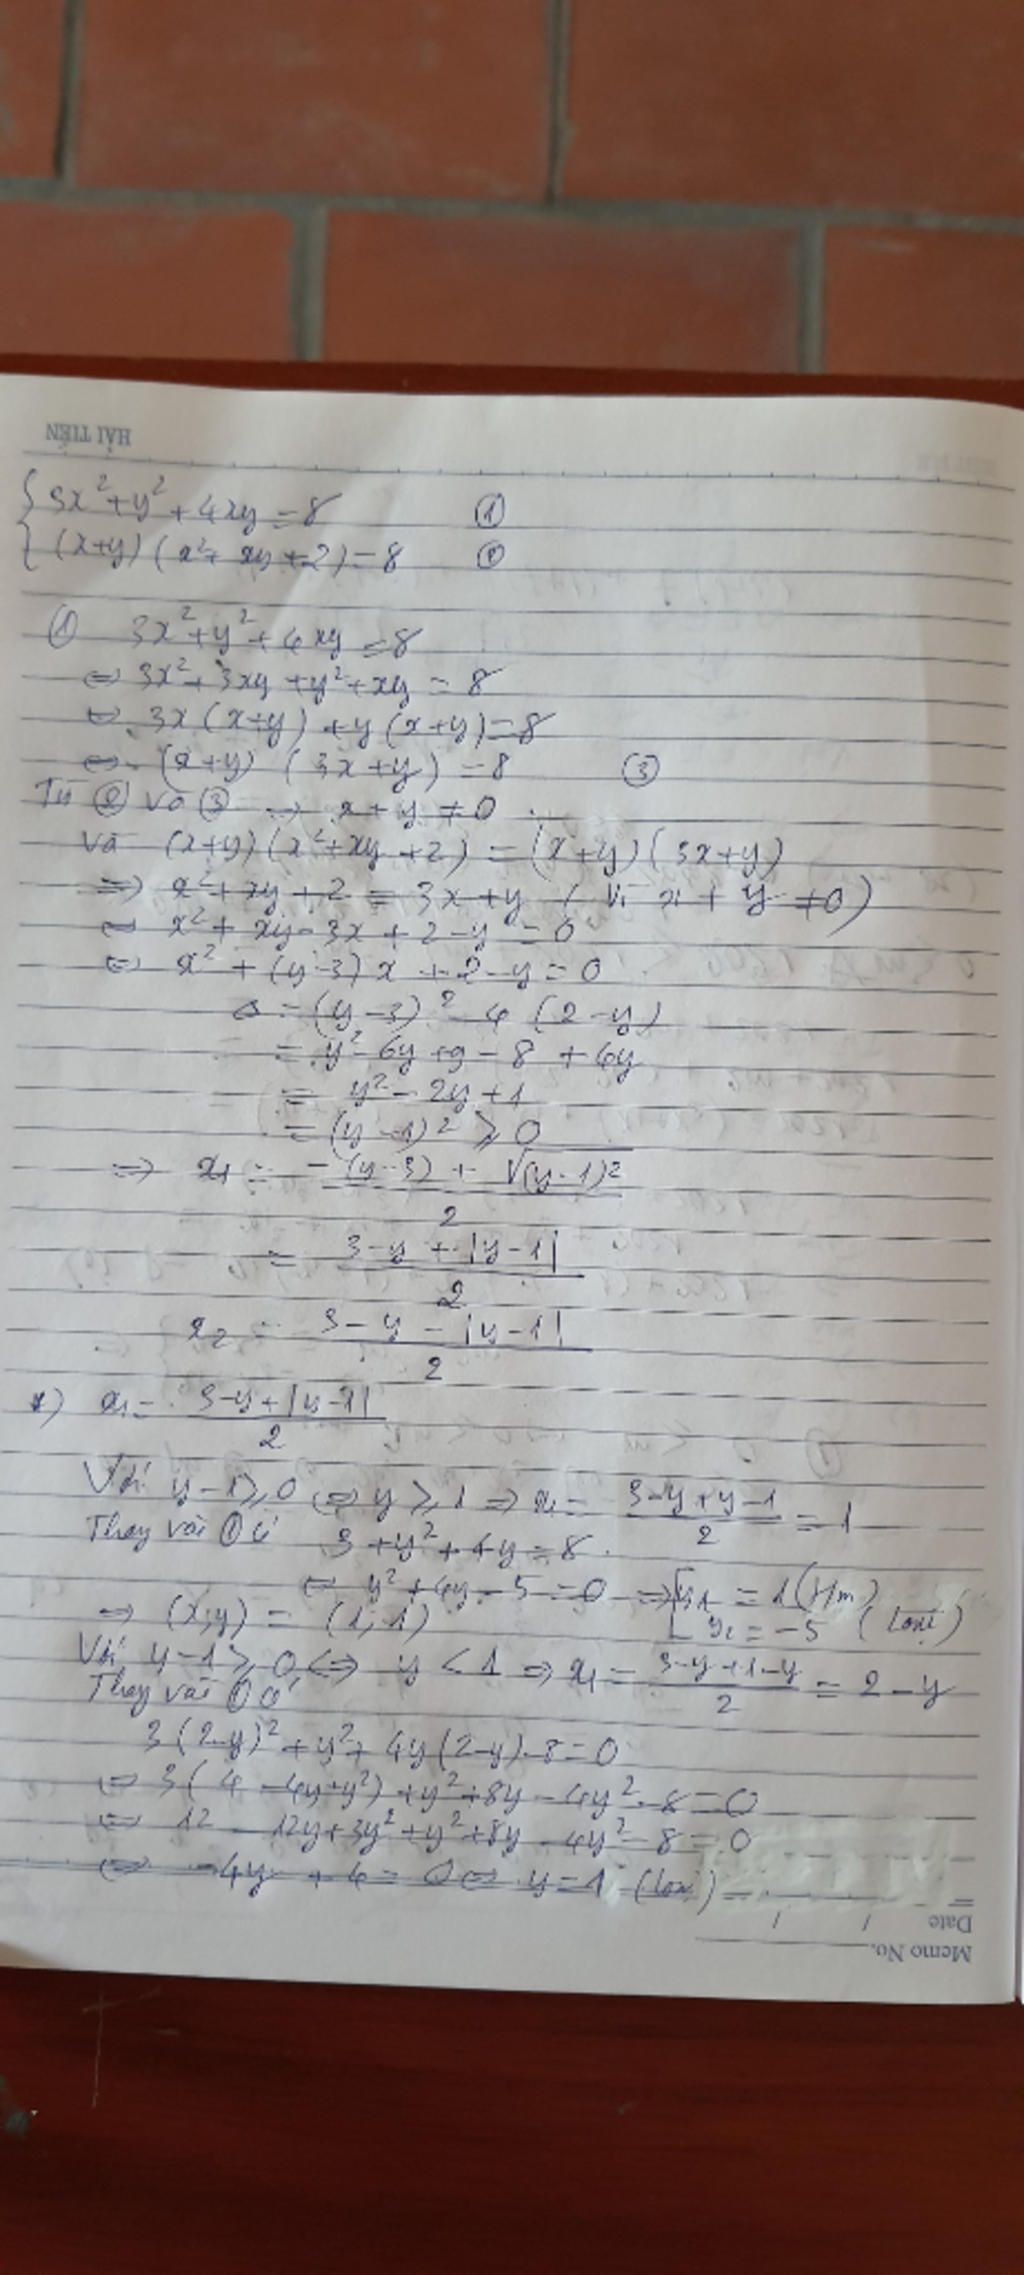 HẢI TIẾN
{ 3x² + y² + 4xy = 8 ①
{ (x+y)(x² + xy + 2) = 8 ②
① 3x² + y² + 4xy = 8
⇔ 3x² + 3xy + y² + xy = 8
⇔ 3x(x+y) + y(x+y) = 8
⇔ (x+y)(3x+y) = 8 ③
Từ ② và ③ → x + y ≠ 0
và (x+y)(x² + xy + 2) = (x+y)(3x+y)
⇒ x² + xy + 2 = 3x + y (Vì x + y ≠ 0)
⇔ x² + xy - 3x + 2 - y = 0
⇔ x² + (y-3)x + 2 - y = 0
Δ = (y-3)² - 4(2-y)
= y² - 6y + 9 - 8 + 4y
= y² - 2y + 1
= (y-1)² ⩾ 0
⇒ x₁ = (-(y-3) + √(y-1)²)/2
= (3-y + |y-1|)/2
x₂ = (3-y - |y-1|)/2
*) x₁ = (3-y + |y-1|)/2
Với y-1 ⩾ 0 ⇔ y ⩾ 1 ⇒ x₁ = (3-y+y-1)/2 = 1
Thay vào ① 3 + y² + 4y = 8
⇔ y² + 4y - 5 = 0 ⇒ [ y₁ = 1 (tm)
⇒ (x;y) = (1;1) [ y₂ = -5 (loại)
Với y-1 ⩾ 0 ⇔ y < 1 ⇒ x₁ = (3-y+1-y)/2 = 2-y
Thay vào ①
3(2-y)² + y² + 4y(2-y) - 8 = 0
⇔ 3(4 - 4y + y²) + y² + 8y - 4y² - 8 = 0
⇔ 12 - 12y + 3y² + y² + 8y - 4y² - 8 = 0
⇔ -4y + 4 = 0 ⇔ y = 1 (loại)
Date / /
Memo No.